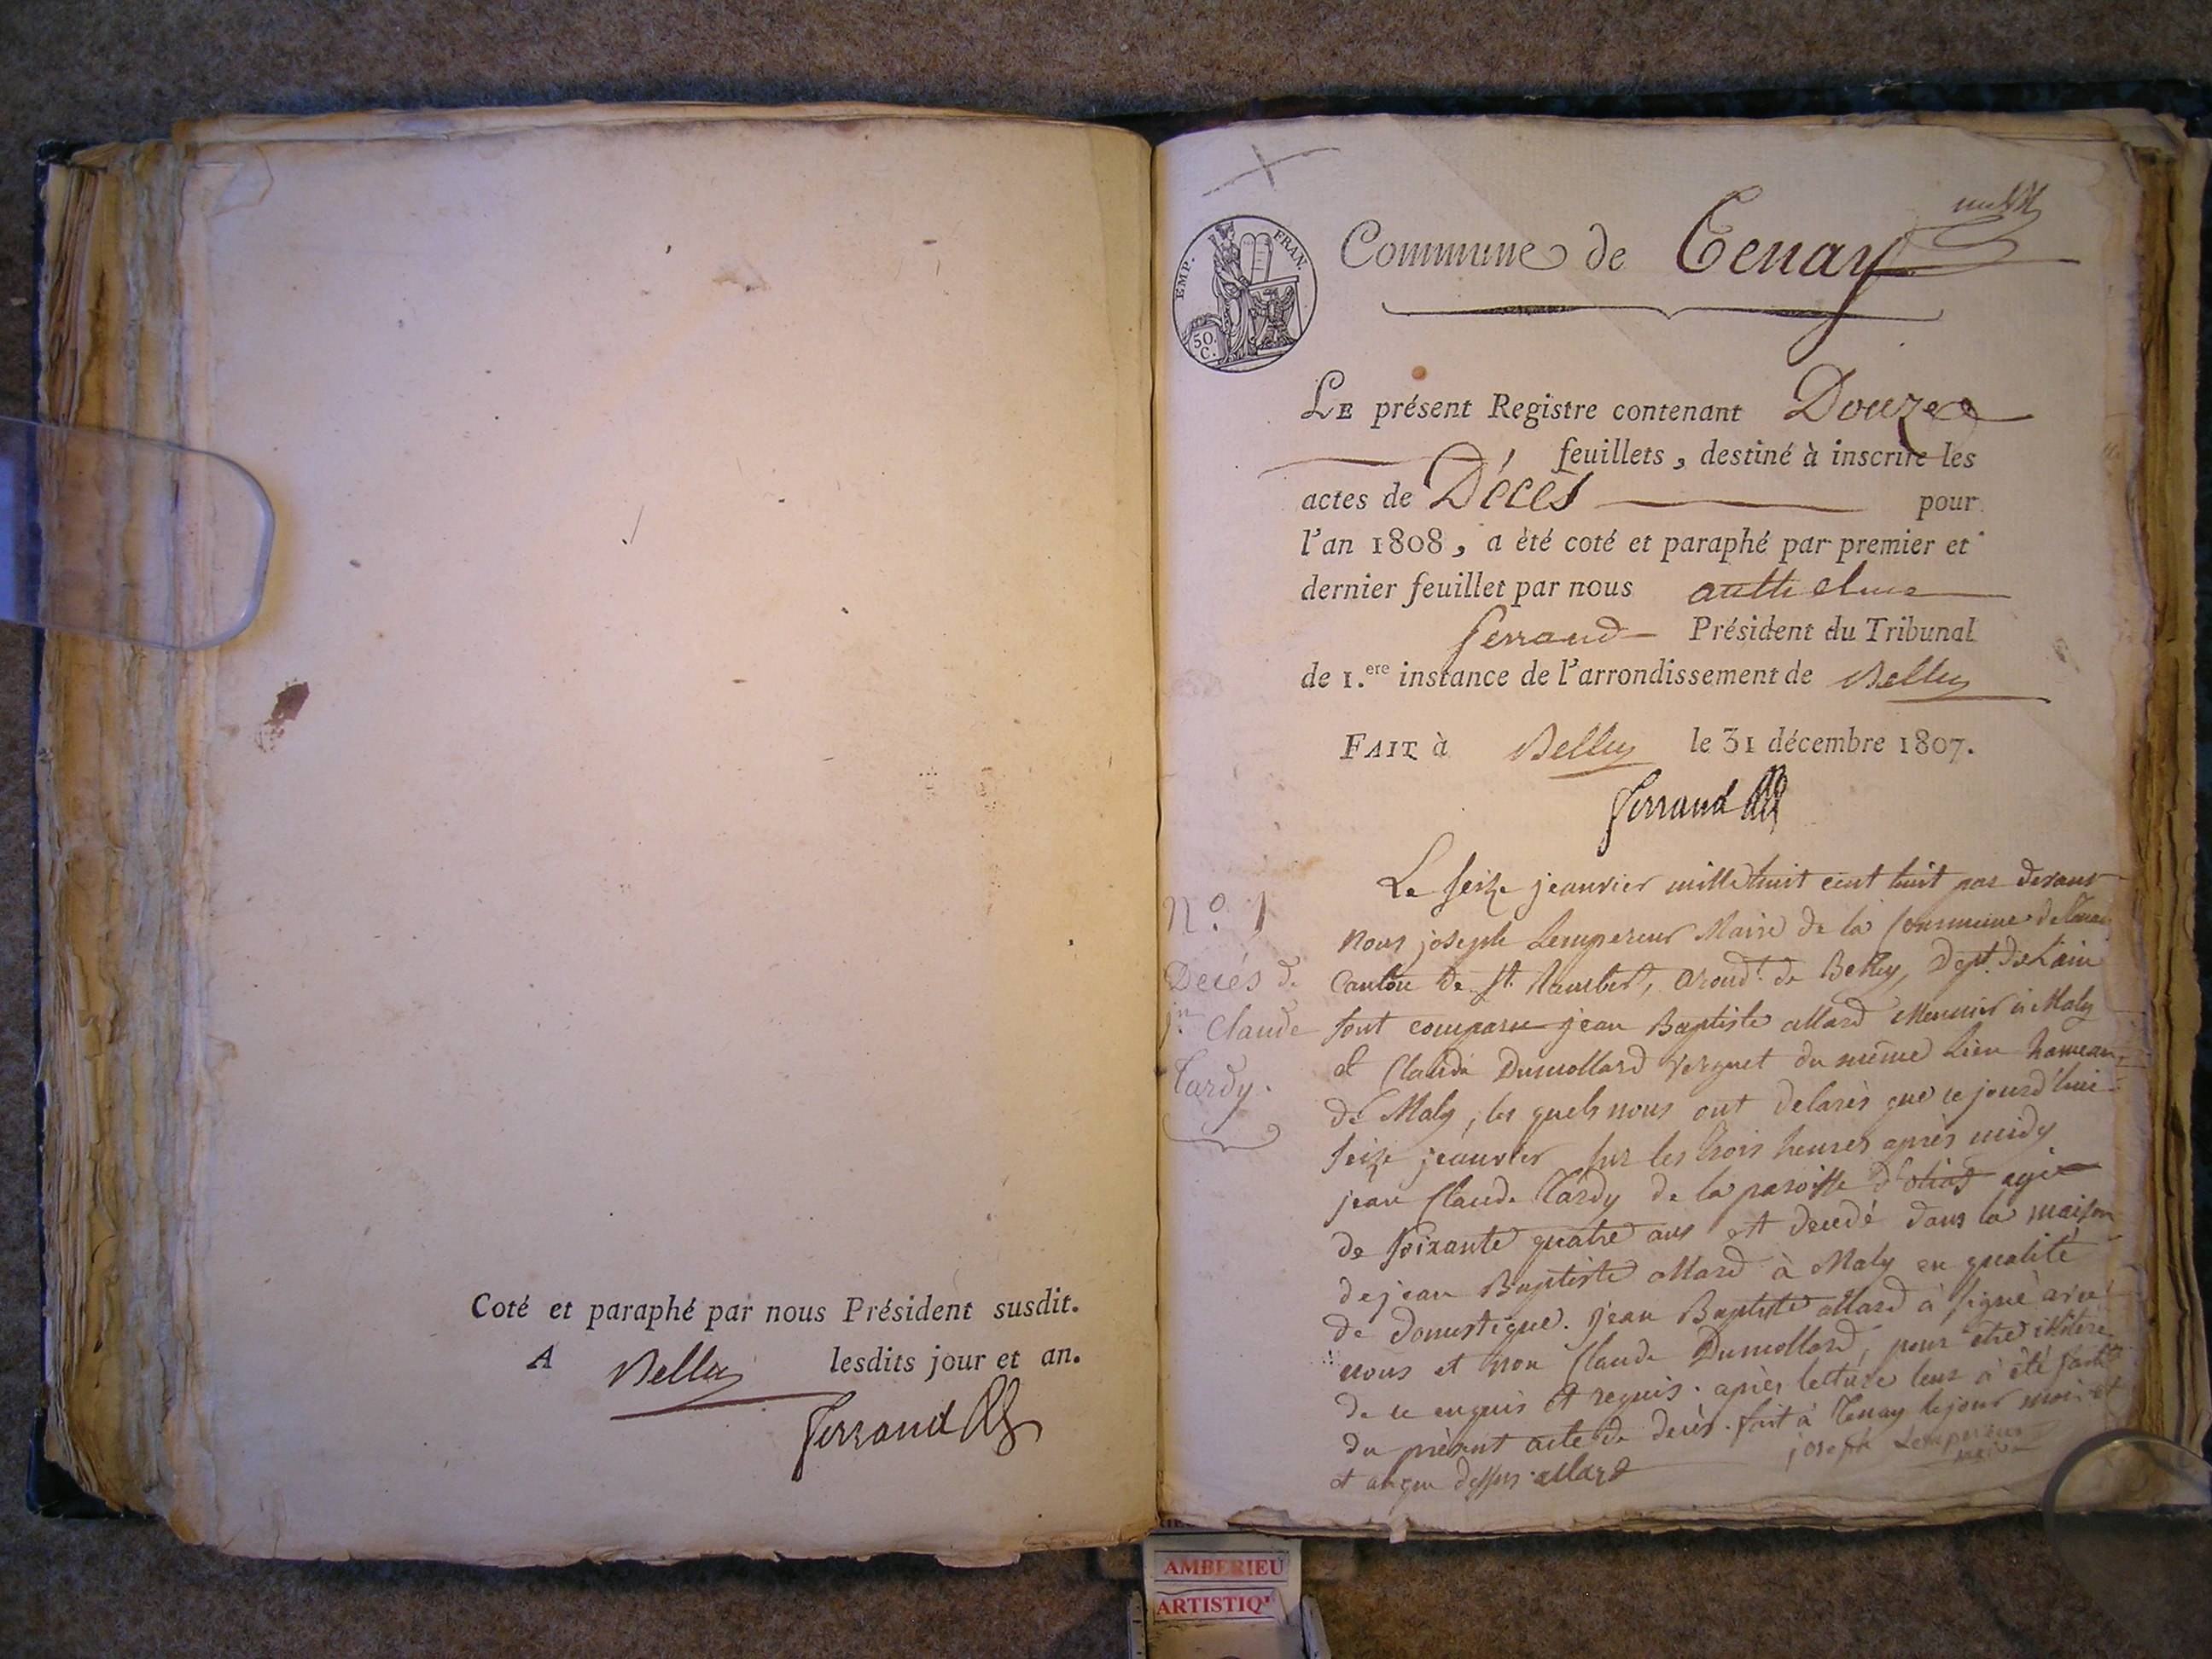 Coté et paraphé par nous Président susdit.
A Belley lesdits jour et an.
Ferrand
EMP. FRAN.
50.
C.
Commune de Tenay
LE présent Registre contenant Douze
feuillets, destiné à inscrire les
actes de Décès pour
l'an 1808, a èté coté et paraphé par premier et
dernier feuillet par nous anthelme
ferrand Président du Tribunal
de 1.ere instance de l'arrondissement de Belley
FAIT à Belley le 31 décembre 1807.
Ferrand
N.o 1
Decés de
jn Claude
Tardy.
Le seize jeanvier mille huit cent huit par devant
nous joseph Lempereur Maire de la Commune de Tenay
Canton de st. Rambert, arond.t de Belley, Dept. de L'ain
sont comparu jean Baptiste allard Meunier à Malix
et Claude Dumollard verguet du même Lieu hameau
de Maly, les quels nous ont delarés que ce jourd'hui
seize jeanvier sur les trois heures après midy
jean Claude Tardy de la paroisse d' agé
de soixante quatre ans est decedé dans la maison
de jean Baptiste allard à Maly en qualité
de domestique. jean Baptiste allard à signé avec
nous et non Claude Dumollard, pour être illitéré
de ce enquis et requis. après letture leur à été faite
du présent acte de decès. fait à Tenay le jour mois et
et an que dessus. allard
joseph Lempereur
maire
AMBERIEU
ARTISTIQ'